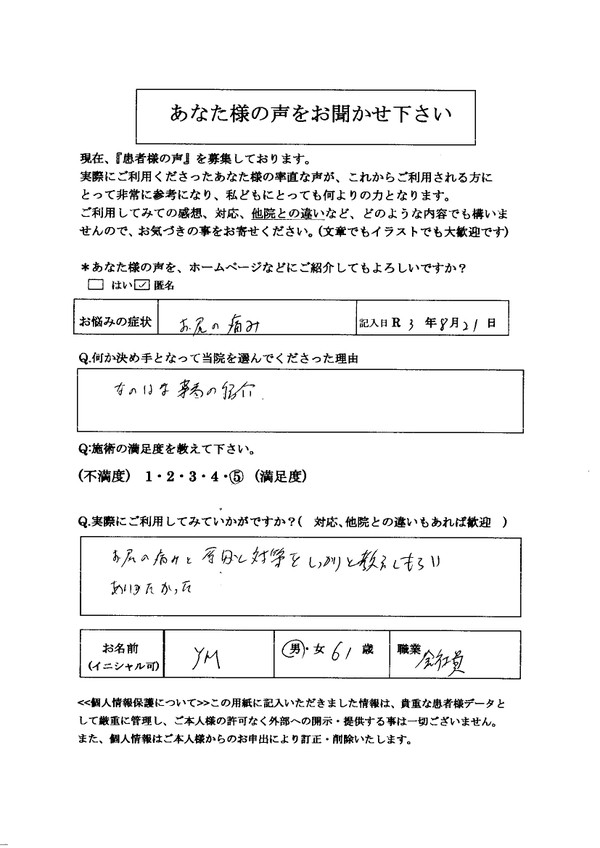 あなた様の声をお聞かせ下さい
現在、『患者様の声』を募集しております。
実際にご利用くださったあなた様の率直な声が、これからご利用される方に
とって非常に参考になり、私どもにとっても何よりの力となります。
ご利用してみての感想、対応、他院との違いなど、どのような内容でも構いま
せんので、お気づきの事をお寄せください。(文章でもイラストでも大歓迎です)
*あなた様の声を、ホームページなどにご紹介してもよろしいですか?
□ はい ☑ 匿名
お悩みの症状 お尻の痛み 記入日 R 3 年 8 月 21 日
Q.何か決め手となって当院を選んでくださった理由
なのはな薬局の紹介
Q:施術の満足度を教えて下さい。
(不満度) 1・2・3・4・⑤ (満足度)
Q.実際にご利用してみていかがですか?( 対応、他院との違いもあれば歓迎 )
お尻の痛みと原因と対策をしっかりと教えてもらい
ありがたかった
お名前 YM 男・女 61 歳 職業 会社員
(イニシャル可)
<<個人情報保護について>>この用紙に記入いただきました情報は、貴重な患者様データと
して厳重に管理し、ご本人様の許可なく外部への開示・提供する事は一切ございません。
また、個人情報はご本人様からのお申出により訂正・削除いたします。